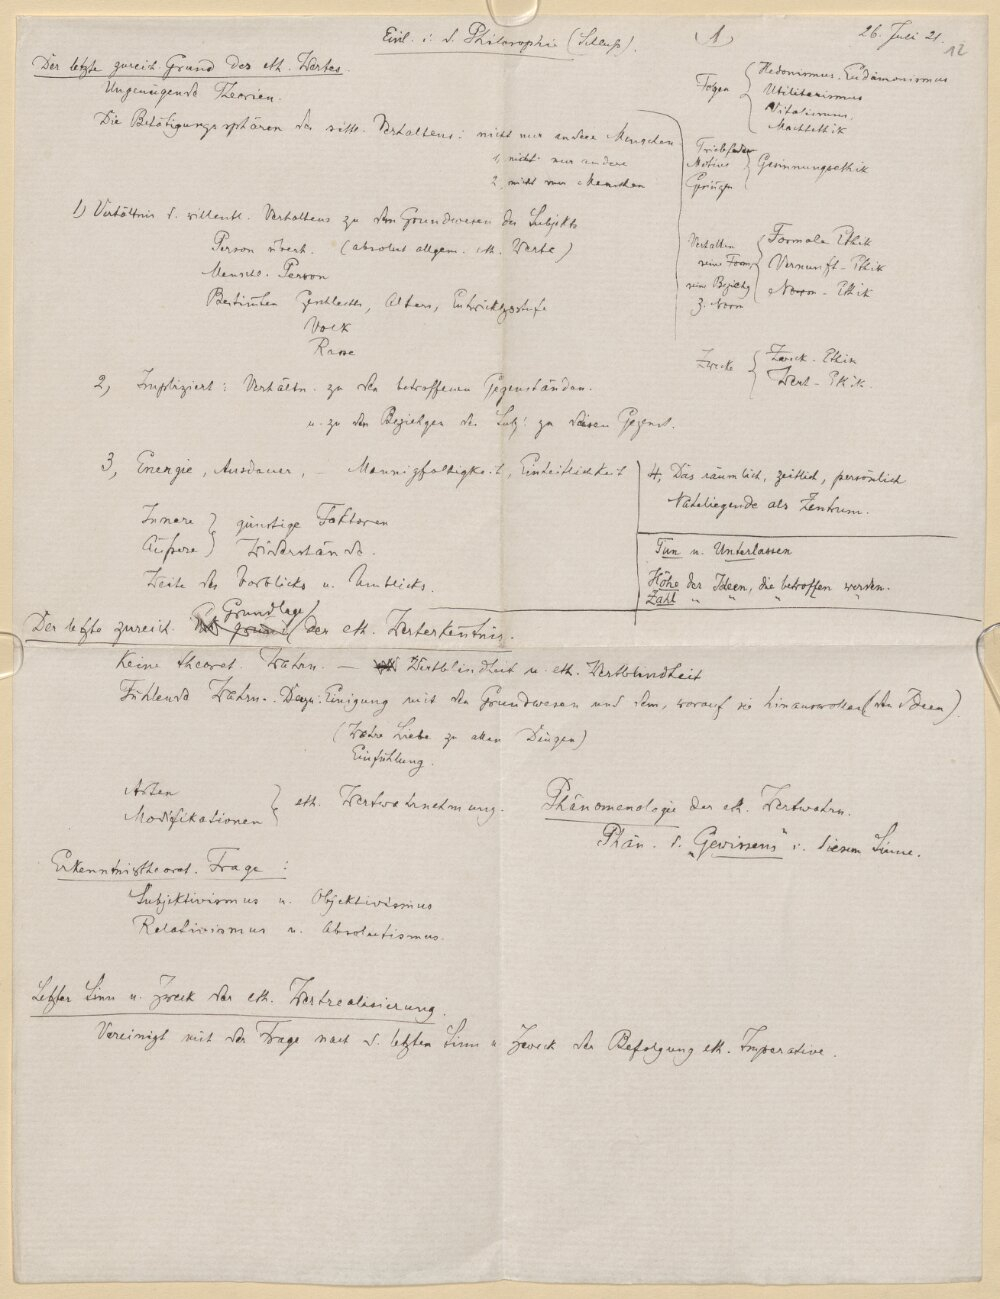 Einl. i. d. Philosophie (Schluß).
1
26. Juli 21.
12
Der letzte zureich. Grund des eth. Wertes.
Ungenügende Theorien.
Die Betätigungssphären des sittl. Verhaltens: nicht nur andere Menschen
1, nicht nur andere
2, nicht nur Menschen
Folgen { Hedonismus. Eudämonismus
Utilitarismus
Vitalismus.
Machtethik
Triebfedern
Motive } Gesinnungsethik
Verhalten
seine Form,
seine Beziehg
z. Norm
Formale Ethik
Vernunft-Ethik
Norm-Ethik
Zwecke { Zweck-Ethik
Wert-Ethik.
1) Verhältnis d. willentl. Verhaltens zu dem Grundwesen des Subjekts
Person überh. (absolut allgem. eth. Werte)
Menschl. Person
Bestimten Geschlechts, Alters, Entwicklgsstufe
Volk
Rasse
2, Impliziert: Verhältn. zu den betroffenen Gegenständen.
u. zu den Beziehgen des Subj. zu diesen Gegenst.
3, Energie, Ausdauer, – Mannigfaltigkeit, Einheitlichkeit
Innere
Äußere } günstige Faktoren
Widerstände.
Weite des Vorblicks u. Umblicks.
4, Das räumlich, zeitlich, persönlich
Naheliegende als Zentrum.
Tun u. Unterlassen
Höhe der Ideen, die betroffen werden.
Zahl " " " "
Der letzte zureich. Grund Grundlage der eth. Werterkentnis.
Keine theoret. Wahrn. – Wertblindheit u. eth. Wertblindheit
Fühlende Wahrn. Dazu: Einigung mit dem Grundwesen und dem, worauf sie hinauswollen (den Ideen).
(Wahre Liebe zu allen Dingen)
Einfühlung.
Arten
Modifikationen } eth. Wertwahrnehmung.
Phänomenologie der eth. Wertwahrn.
Phän. d. „Gewissens" i. diesem Sinne.
Erkenntnistheoret. Frage:
Subjektivismus u. Objektivismus
Relativismus u. Absolutismus.
Letzter Sinn u. Zweck der eth. Wertrealisierung.
Vereinigt mit der Frage nach d. letzten Sinn u. Zweck der Befolgung eth. Imperative.